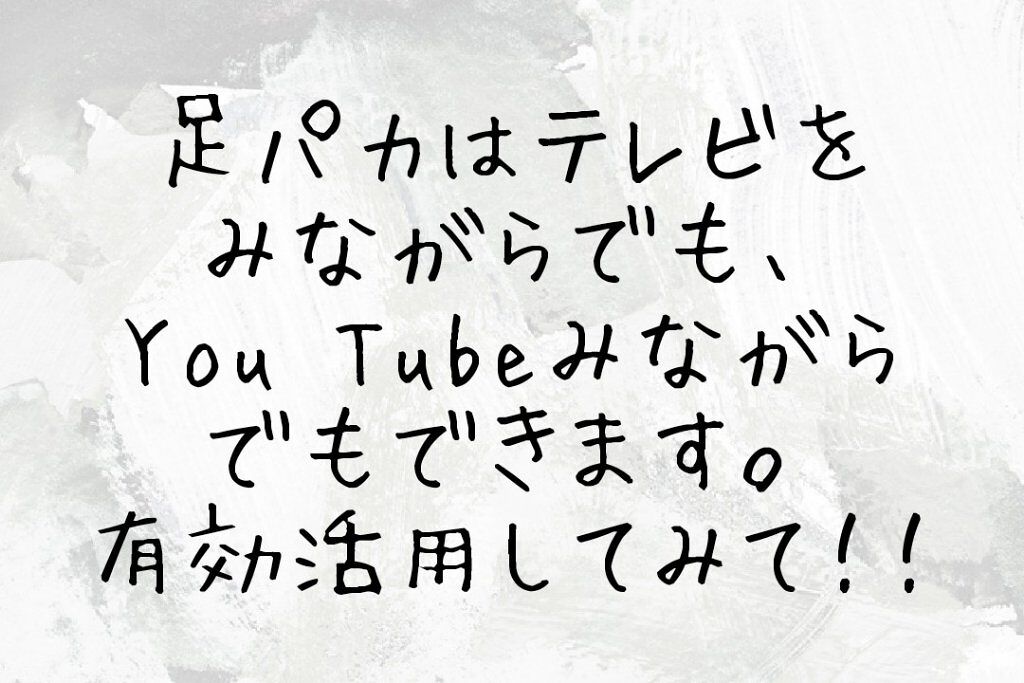 足パカはテレビを
みながらでも、
You Tubeみながら
でもできます。
有効活用してみて!!